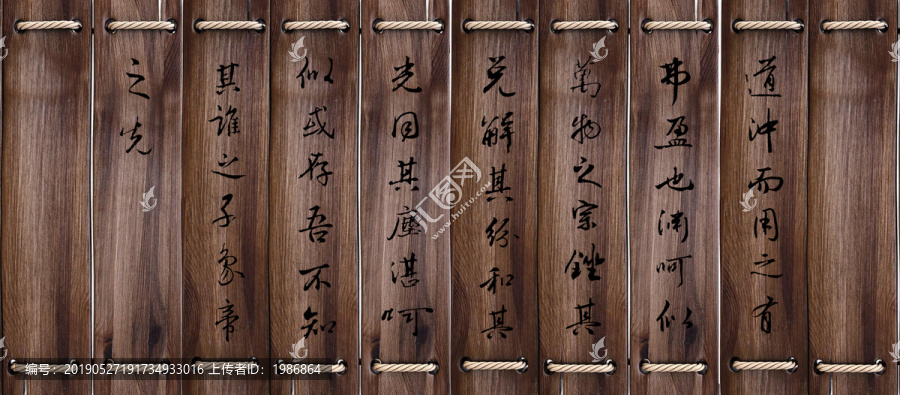 道沖而用之有
弗盈也淵呵似
萬物之宗銼其
兌解其紛和其
光同其塵湛呵
似或存吾不知
其誰之子象帝
之先
汇图网
www.huitu.com
编号：20190527191734933016 上传者ID：1986864